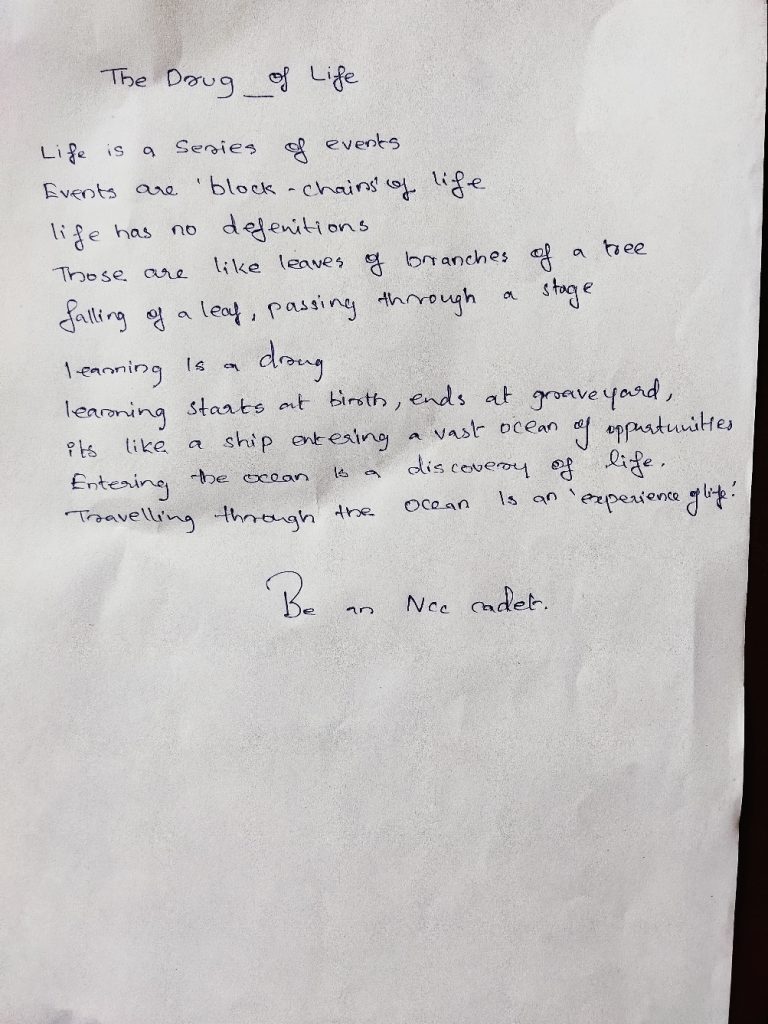 The Drug _of Life
Life is a Series of events
Events are 'block-chains' of life
life has no defenitions
Those are like leaves of branches of a tree
falling of a leaf, passing through a stage
learning is a drug
learning starts at birth, ends at graveyard,
its like a ship entering a vast ocean of oppurtunities
Entering the ocean is a discovery of life.
Travelling through the ocean is an 'experience of life'.
Be an Ncc cadet.